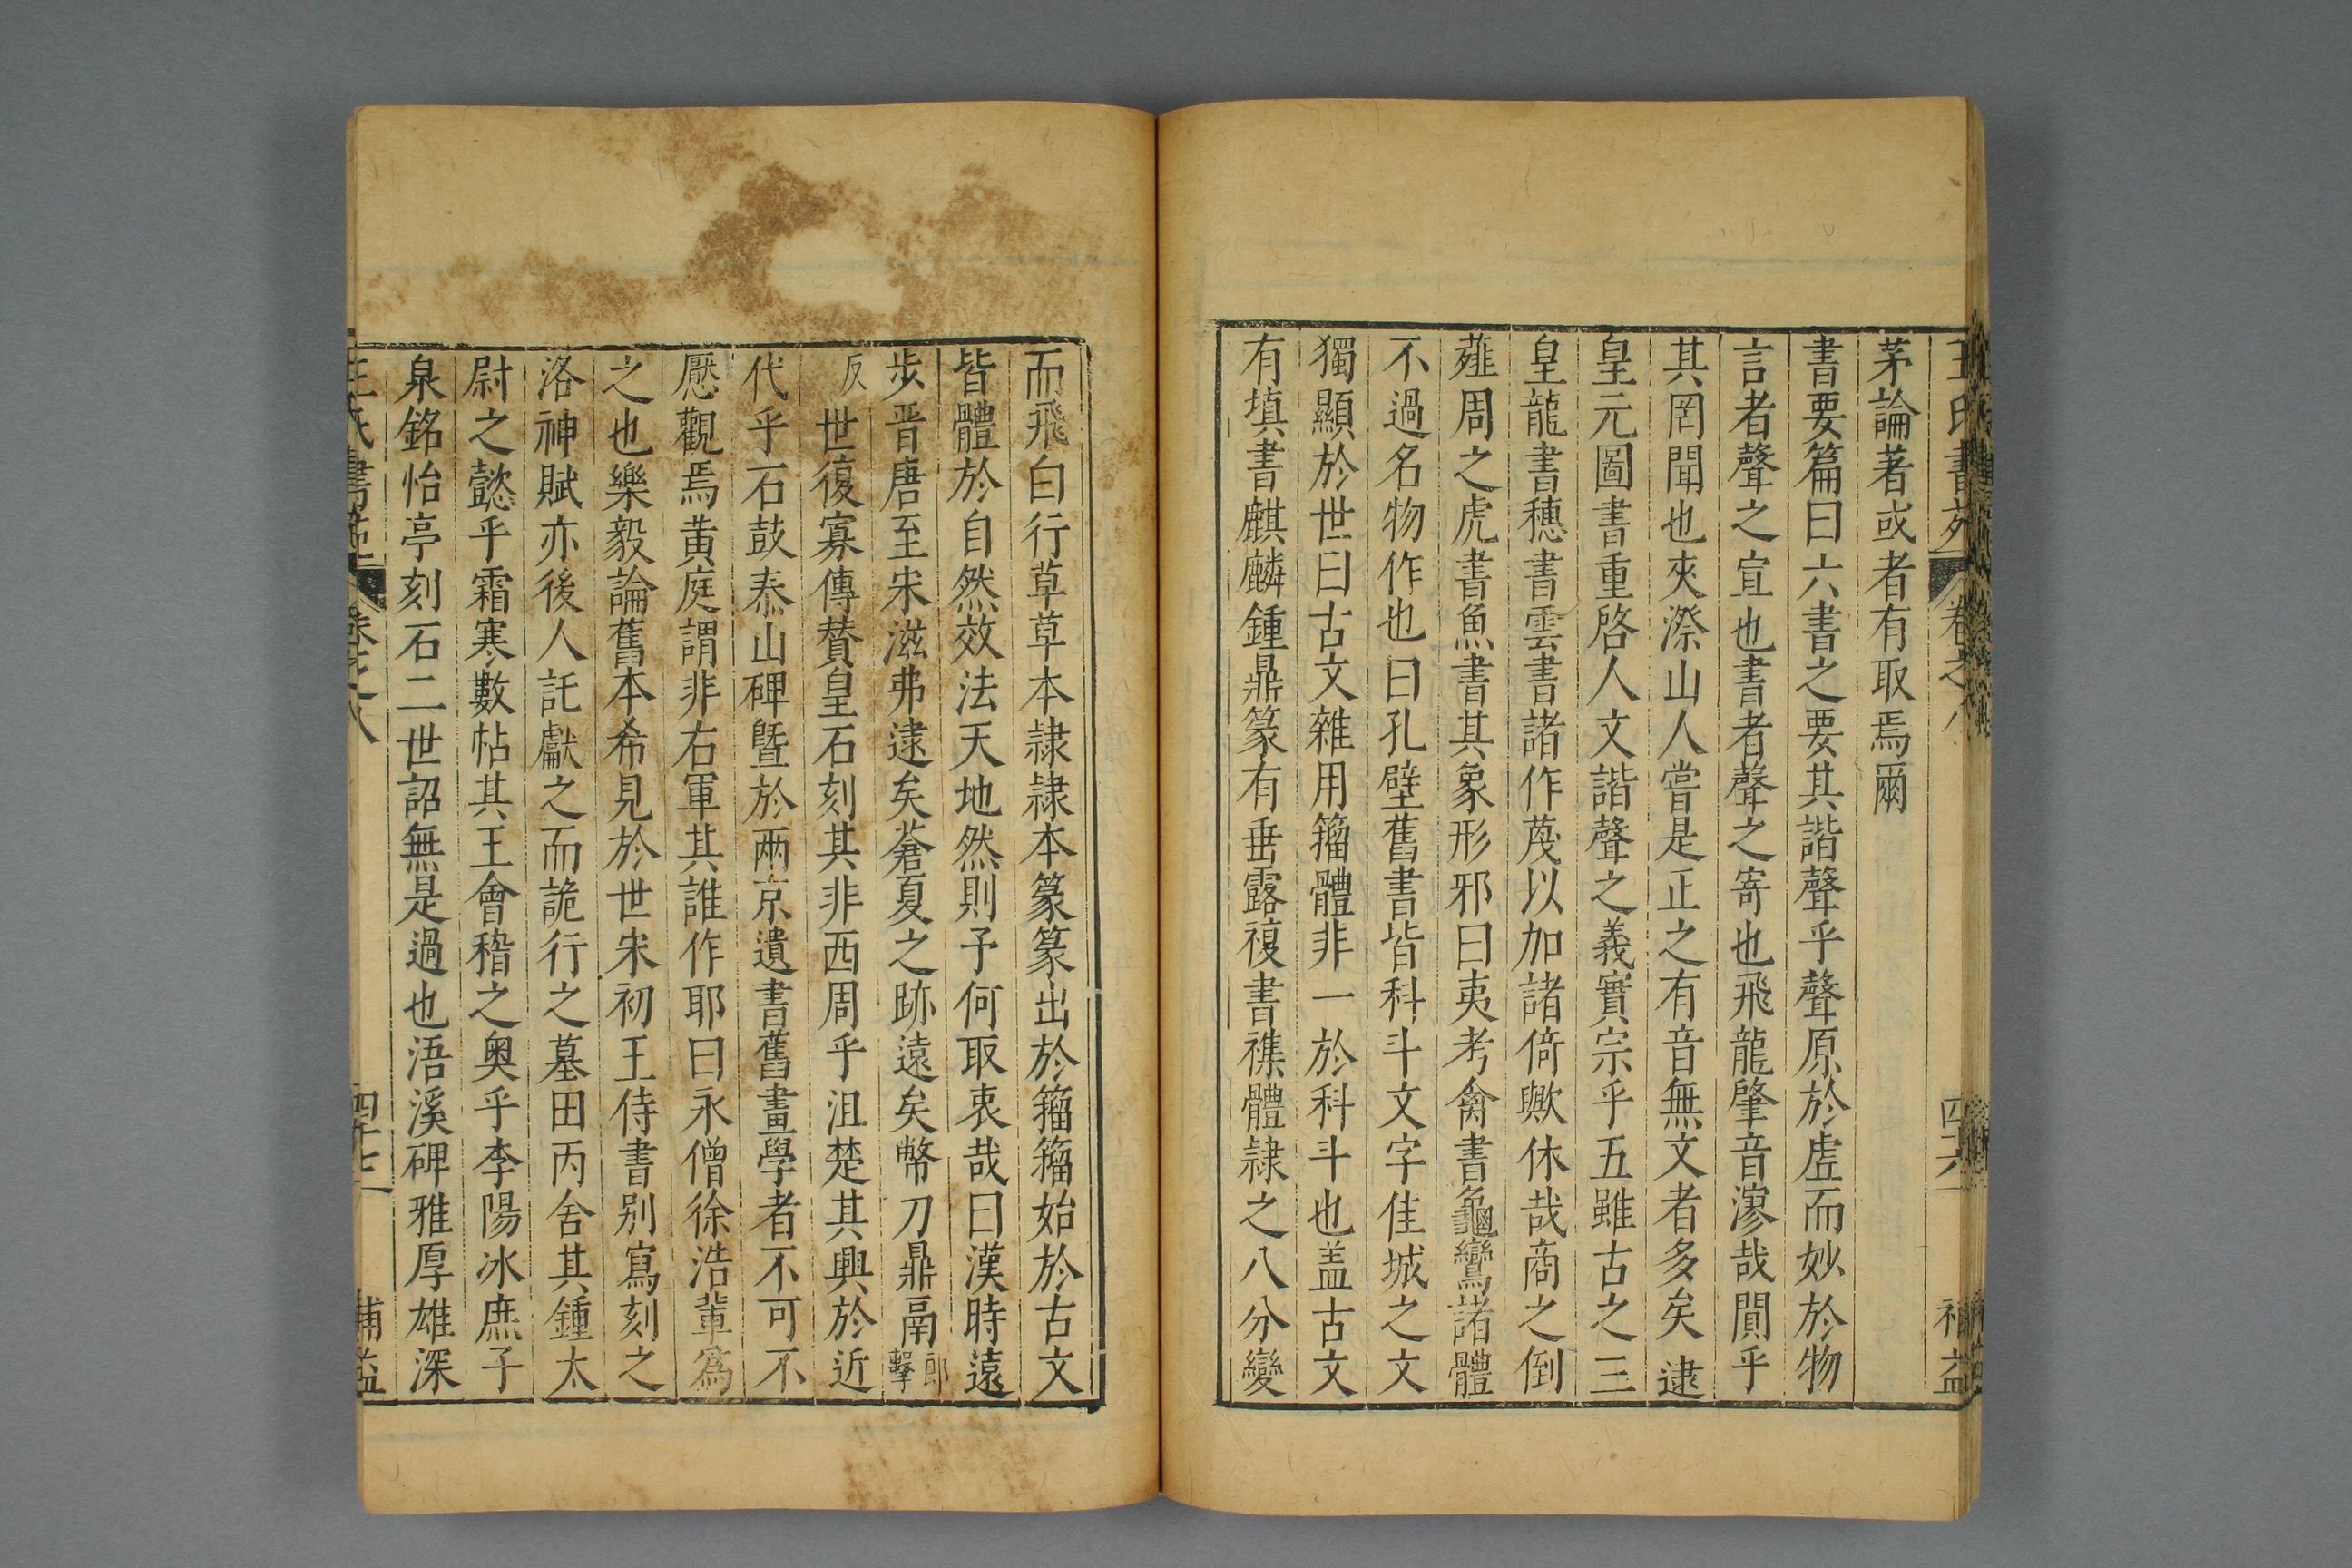 王氏書苑 卷之八 四十六 補益
茅論著或者有取焉爾
書要篇曰六書之要其諧聲乎聲原於虛而妙於物
言者聲之宣也書者聲之寄也飛龍肇音漻哉閴乎
其罔聞也夾漈山人嘗是正之有音無文者多矣逮
皇元圖書重啓人文諧聲之義實宗乎五雖古之三
皇龍書穗書雲書諸作蔑以加諸倚歟休哉商之倒
薤周之虎書魚書其象形邪曰夷考禽書龜鸞諸體
不過名物作也曰孔壁舊書皆科斗文字佳城之文
獨顯於世曰古文雜用籀體非一於科斗也盖古文
有填書麒麟鍾鼎篆有垂露複書襍體隷之八分變
而飛白行草草本隷隷本篆篆出於籀籀始於古文
皆體於自然效法天地然則予何取衷哉曰漢時遠
步晋唐至宋滋弗逮矣蒼夏之跡遠矣幣刀鼎鬲郎擊
反世復寡傳賛皇石刻其非西周乎沮楚其興於近
代乎石鼓泰山碑曁於兩京遺書舊畫學者不可不
厭觀焉黄庭謂非右軍其誰作耶曰永僧徐浩輩為
之也樂毅論舊本希見於世宋初王侍書别寫刻之
洛神賦亦後人託獻之而詭行之墓田丙舍其鍾太
尉之懿乎霜寒數帖其王會稽之奥乎李陽冰庶子
泉銘怡亭刻石二世詔無是過也浯溪碑雅厚雄深
王氏書苑 卷之八 四十七 補益